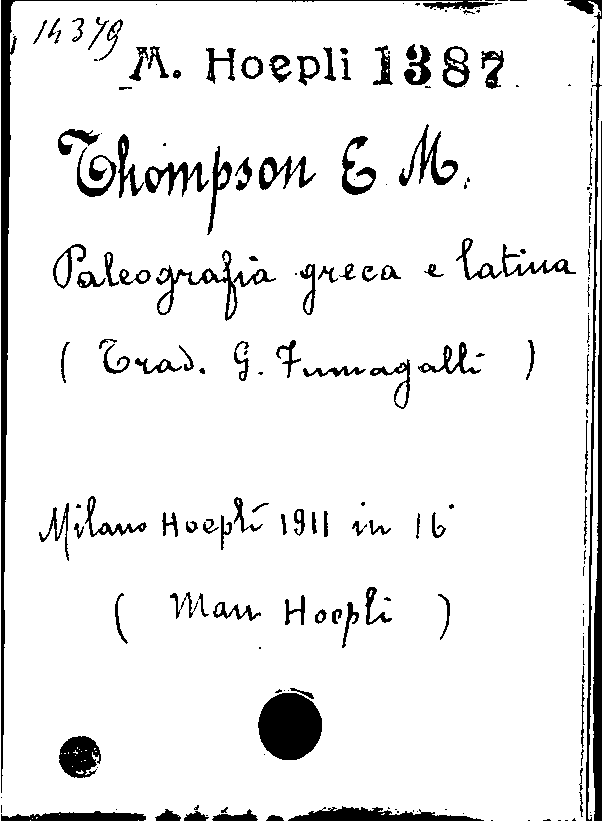 14379
M. Hoepli 1387
Thompson E M.
Paleografia greca e latina
( Trad. G. Fumagalli )
Milano Hoepli 1911 in 16°
( Man Hoepli )